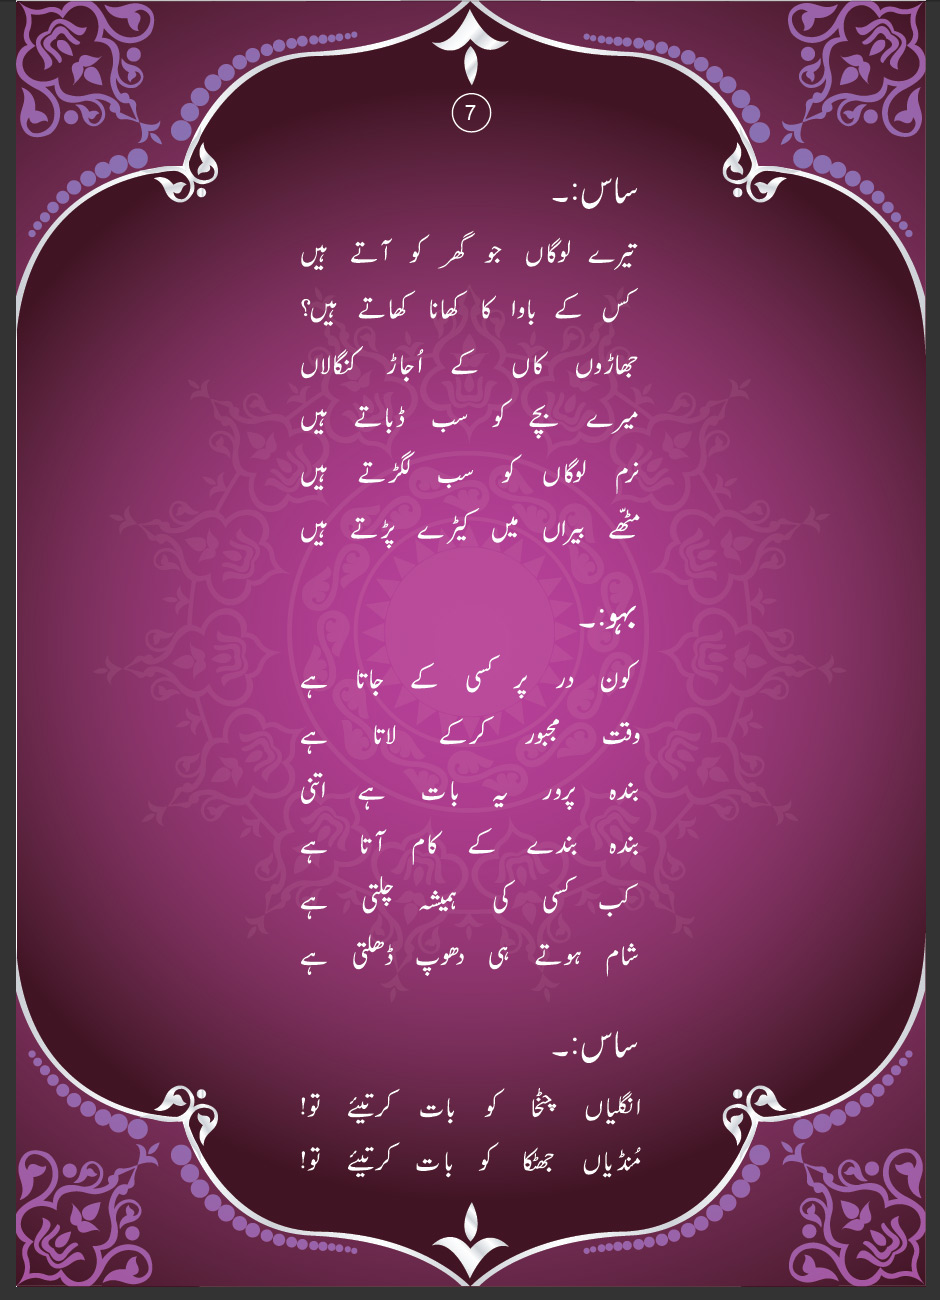 7
ساس:۔
تیرے لوگاں جو گھر کو آتے ہیں
کس کے باوا کا کھانا کھاتے ہیں؟
جھاڑوں کاں کے اُجاڑ کنگالاں
میرے بچے کو سب ڈباتے ہیں
نرم لوگاں کو سب لگڑتے ہیں
مٹھّے بیراں میں کیڑے پڑتے ہیں
بہو:۔
کون در پر کسی کے جاتا ہے
وقت مجبور کرکے لاتا ہے
بندہ پرور یہ بات ہے اتنی
بندہ بندے کے کام آتا ہے
کب کسی کی ہمیشہ چلتی ہے
شام ہوتے ہی دھوپ ڈھلتی ہے
ساس:۔
انگلیاں چٹخا کو بات کرتیئے تو!
مُنڈیاں جھٹکا کو بات کرتیئے تو!